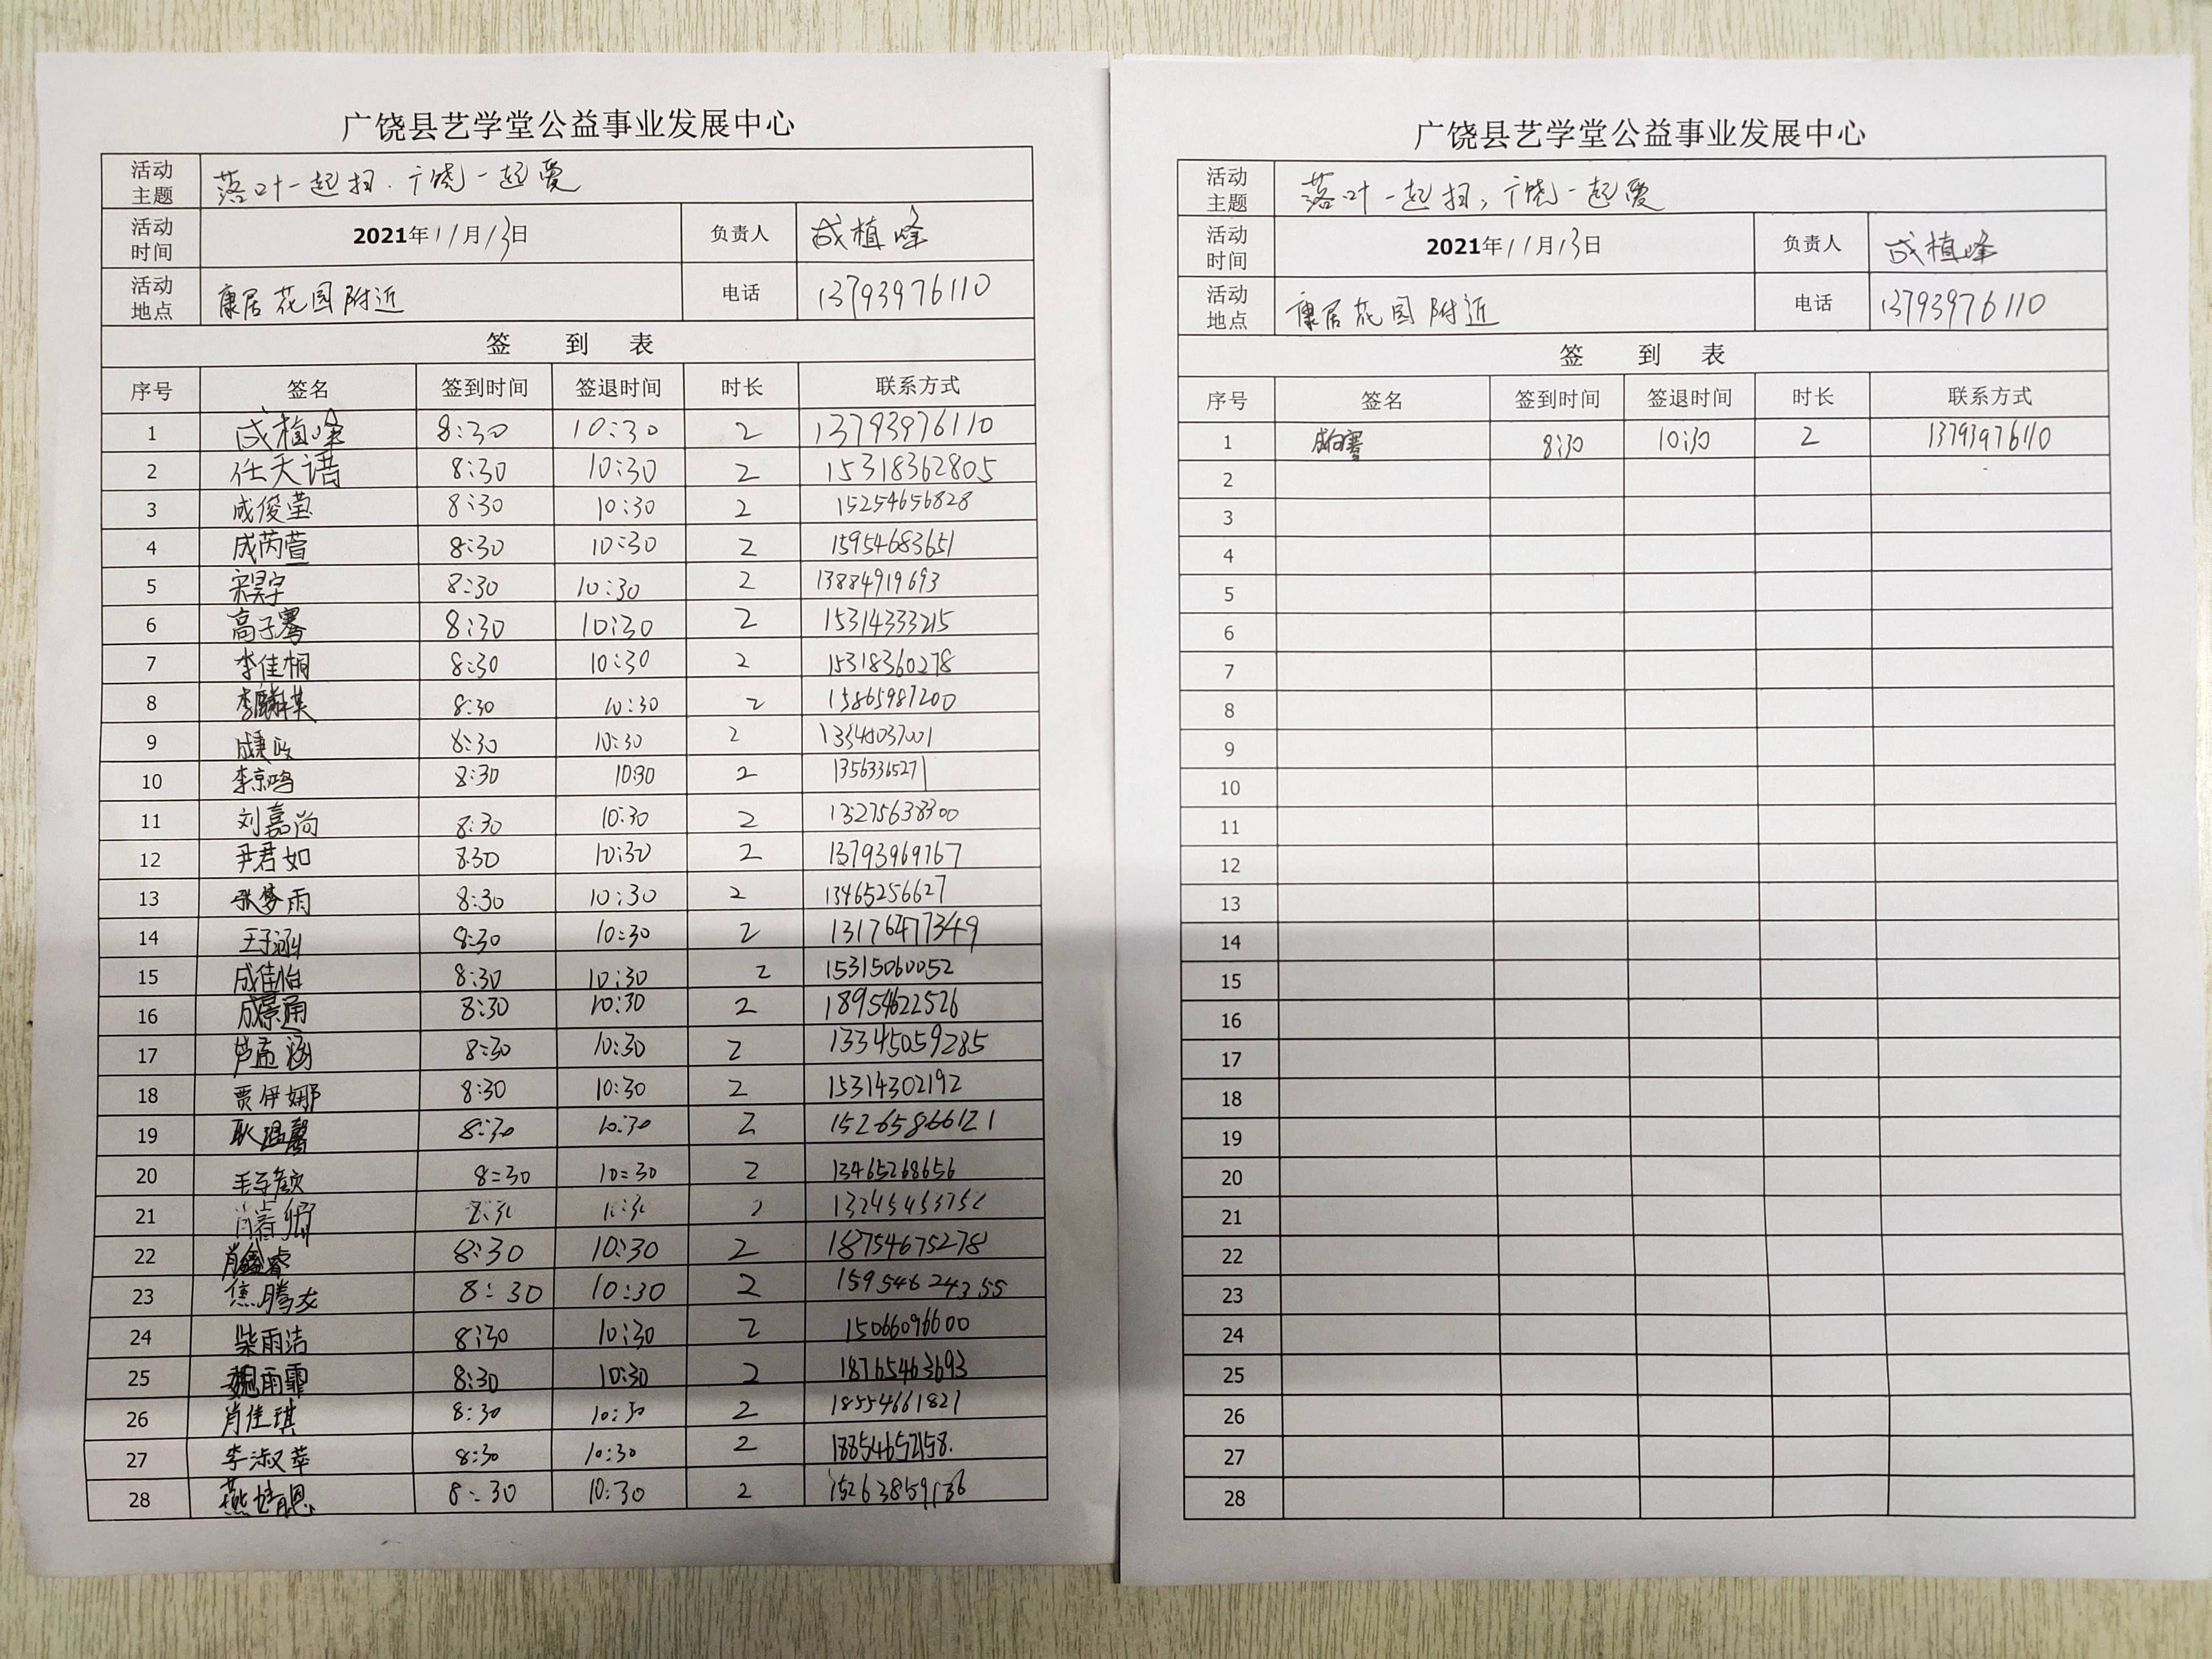 广饶县艺学堂公益事业发展中心
活动主题 落叶一起扫.广饶一起爱
活动时间 2021年11月13日 负责人 成植峰
活动地点 康居花园附近 电话 13793976110
签 到 表
序号 签名 签到时间 签退时间 时长 联系方式
1 成植峰 8:30 10:30 2 13793976110
2 任天语 8:30 10:30 2 15318362805
3 成俊莹 8:30 10:30 2 15254656828
4 成芮萱 8:30 10:30 2 15954683651
5 宋昊宇 8:30 10:30 2 13884919693
6 高子骞 8:30 10:30 2 15314333215
7 李佳桐 8:30 10:30 2 15318360278
8 李麟祺 8:30 10:30 2 15865987200
9 8:30 10:30 2
10 李京鸣 8:30 10:30 2 13563365271
11 刘嘉尚 8:30 10:30 2 13275638300
12 尹君如 8:30 10:30 2 13793969767
13 张梦雨 8:30 10:30 2 13465256627
14 王子涵 8:30 10:30 2 13176477349
15 成佳怡 8:30 10:30 2 15315060052
16 成景通 8:30 10:30 2 18954622526
17 芦孟涵 8:30 10:30 2 13345059285
18 贾伊娜 8:30 10:30 2 15314302192
19 耿温馨 8:30 10:30 2 15265866121
20 毛子歆 8:30 10:30 2 13465268656
21 8:30 10:30 2
22 肖鑫睿 8:30 10:30 2 18754675278
23 焦腾友 8:30 10:30 2 15954624355
24 柴雨洁 8:30 10:30 2 15066096600
25 魏雨霏 8:30 10:30 2 18765463693
26 肖佳琪 8:30 10:30 2 18554661821
27 李淑苹 8:30 10:30 2 18854657158.
28 8:30 10:30 2
广饶县艺学堂公益事业发展中心
活动主题 落叶一起扫,广饶一起爱
活动时间 2021年11月13日 负责人 成植峰
活动地点 康居花园附近 电话 13793976110
签 到 表
序号 签名 签到时间 签退时间 时长 联系方式
1 8:30 10:30 2 13793976110
2
3
4
5
6
7
8
9
10
11
12
13
14
15
16
17
18
19
20
21
22
23
24
25
26
27
28